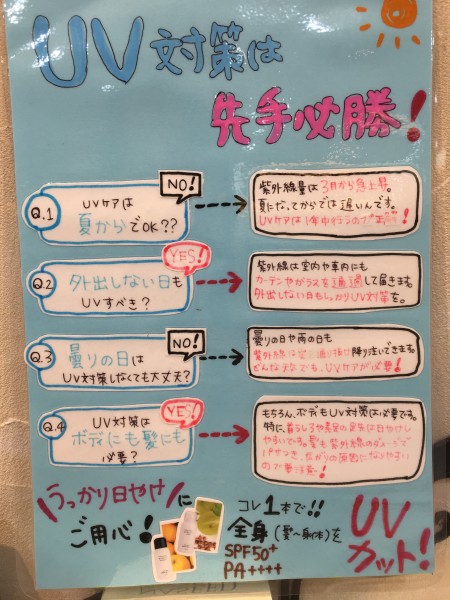 UV対策は
先手必勝!
Q.1
UVケアは
夏からでOK??
NO!
紫外線量は3月から急上昇。
夏になってからでは遅いんです。
UVケアは1年中
Q.2
外出しない日も
UVすべき?
YES!
紫外線は室内や車内にも
カーテンやガラスを通過して届きます。
外出しない日もしっかりUV対策を。
Q.3
曇りの日は
UV対策しなくても大丈夫?
NO!
曇りの日や雨の日も
紫外線は 降り注いできます。
どんな天気でも、UVケアが必要!
Q.4
UV対策は
ボディにも髪にも
必要?
YES!
もちろん、ボディもUV対策は必要です。
特に、首うしろや
やすいです。髪も紫外線のダメージで
パサつき、広がりの原因になりやすい
ので要注意!
うっかり日やけに
ご用心!
コレ1本で!!
全身(髪〜身体)を
SPF50+
PA++++
UV
カット!